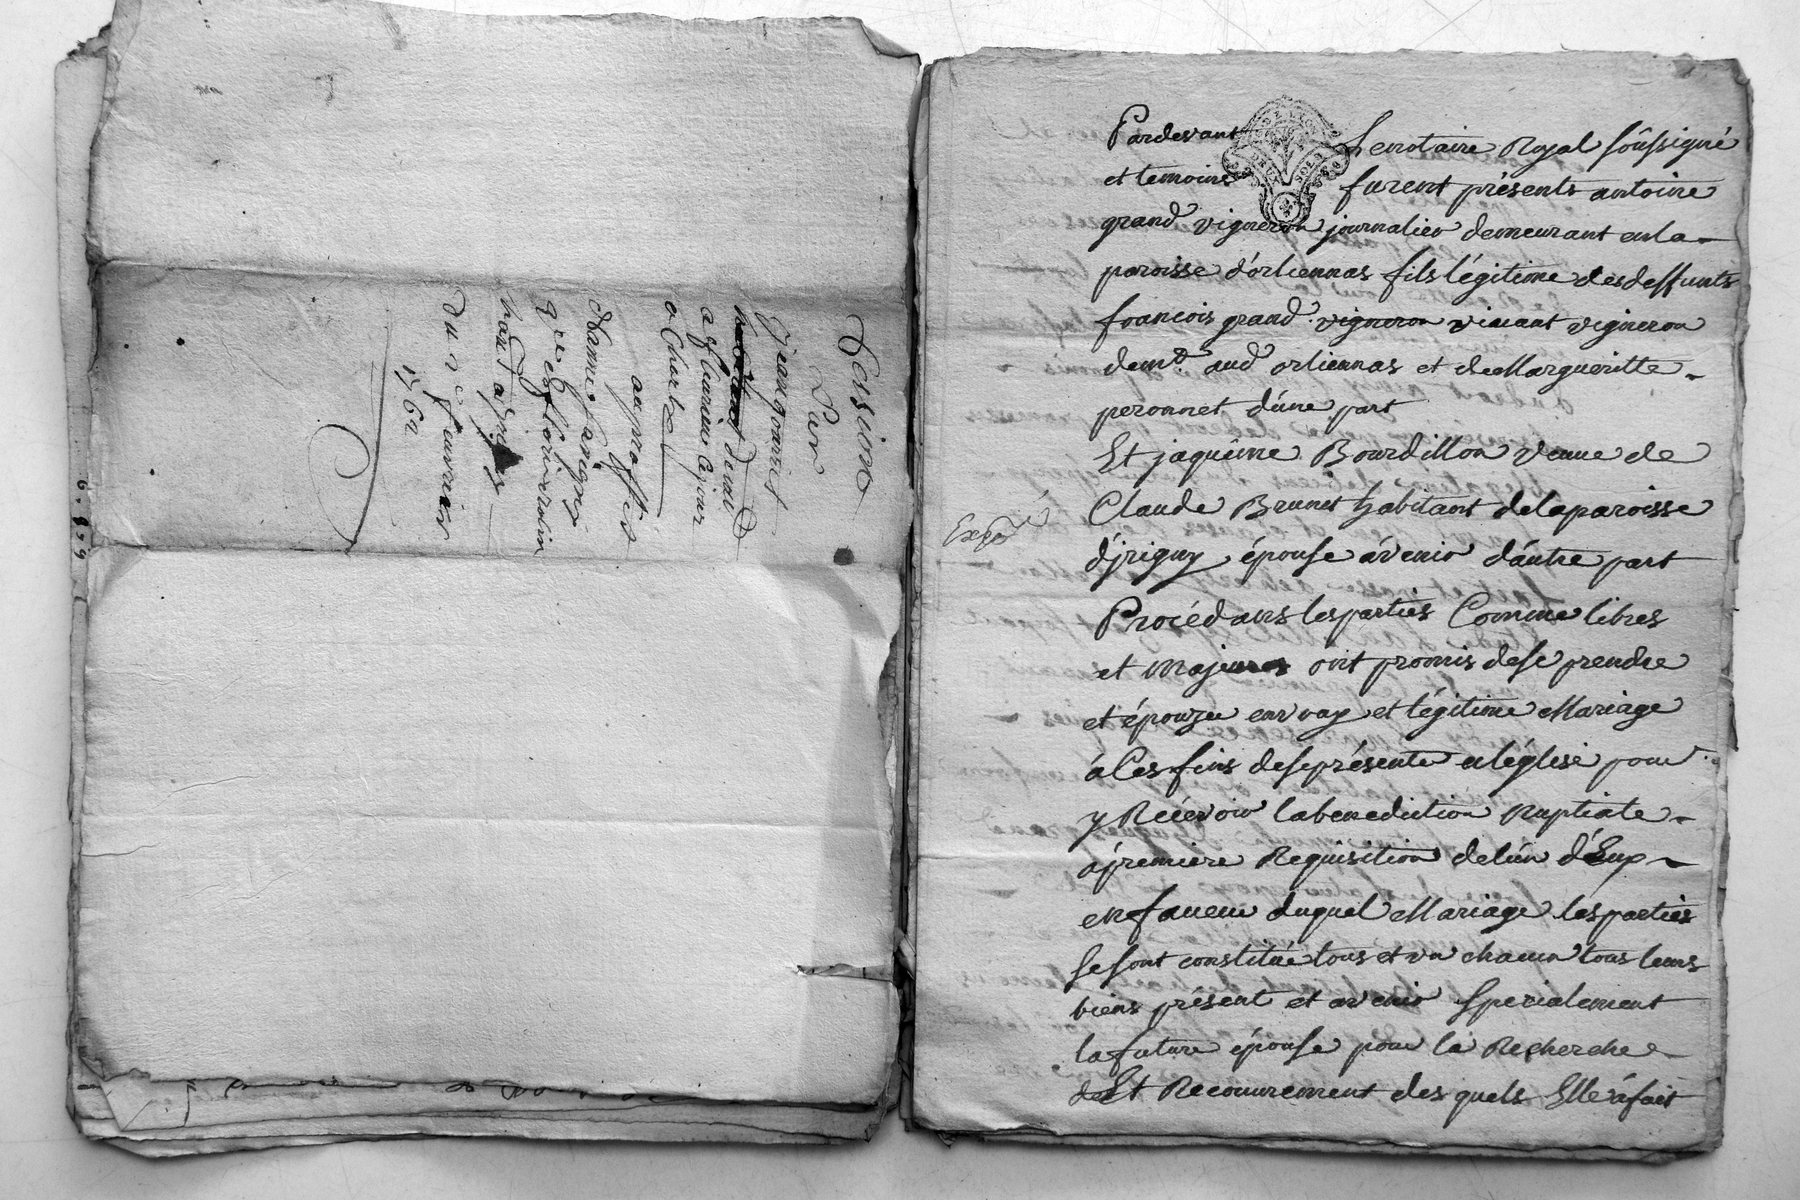 Desion
Par
Jean gouvret
de vale
a fleurine Cajour
a Charte
au proffit
danne farigny
1762
Pardevant Le notaire Royal soussigné
et temoins furent présents antoine
grand vigneron journalier demeurant en la
paroisse d'orliennas fils légitime des deffunts
francois grand vigneron vivant vigneron
demt. aud orliennas et de Margueritte
peronnet d'une part
Et jaquême Bourdillon veuve de
Claude Brunet habitant de la paroisse
d'jrigny épouse avenir d'autre part
Procédants les parties Comme libres
et majeures ont promis de se prendre
et épouzer en vray et légitime Mariage
á Ces fins de se présenter en l'église pour
y Récevoir la benediction nuptiale
á premiere Requisition de l'un d'Eux
en faveur duquel Mariage les parties
se sont constitué tous et un chacun tous leurs
biens présent et avenir specialement
la future épouse pour la Recherche
Et Recouvrement des quels Elle á fait